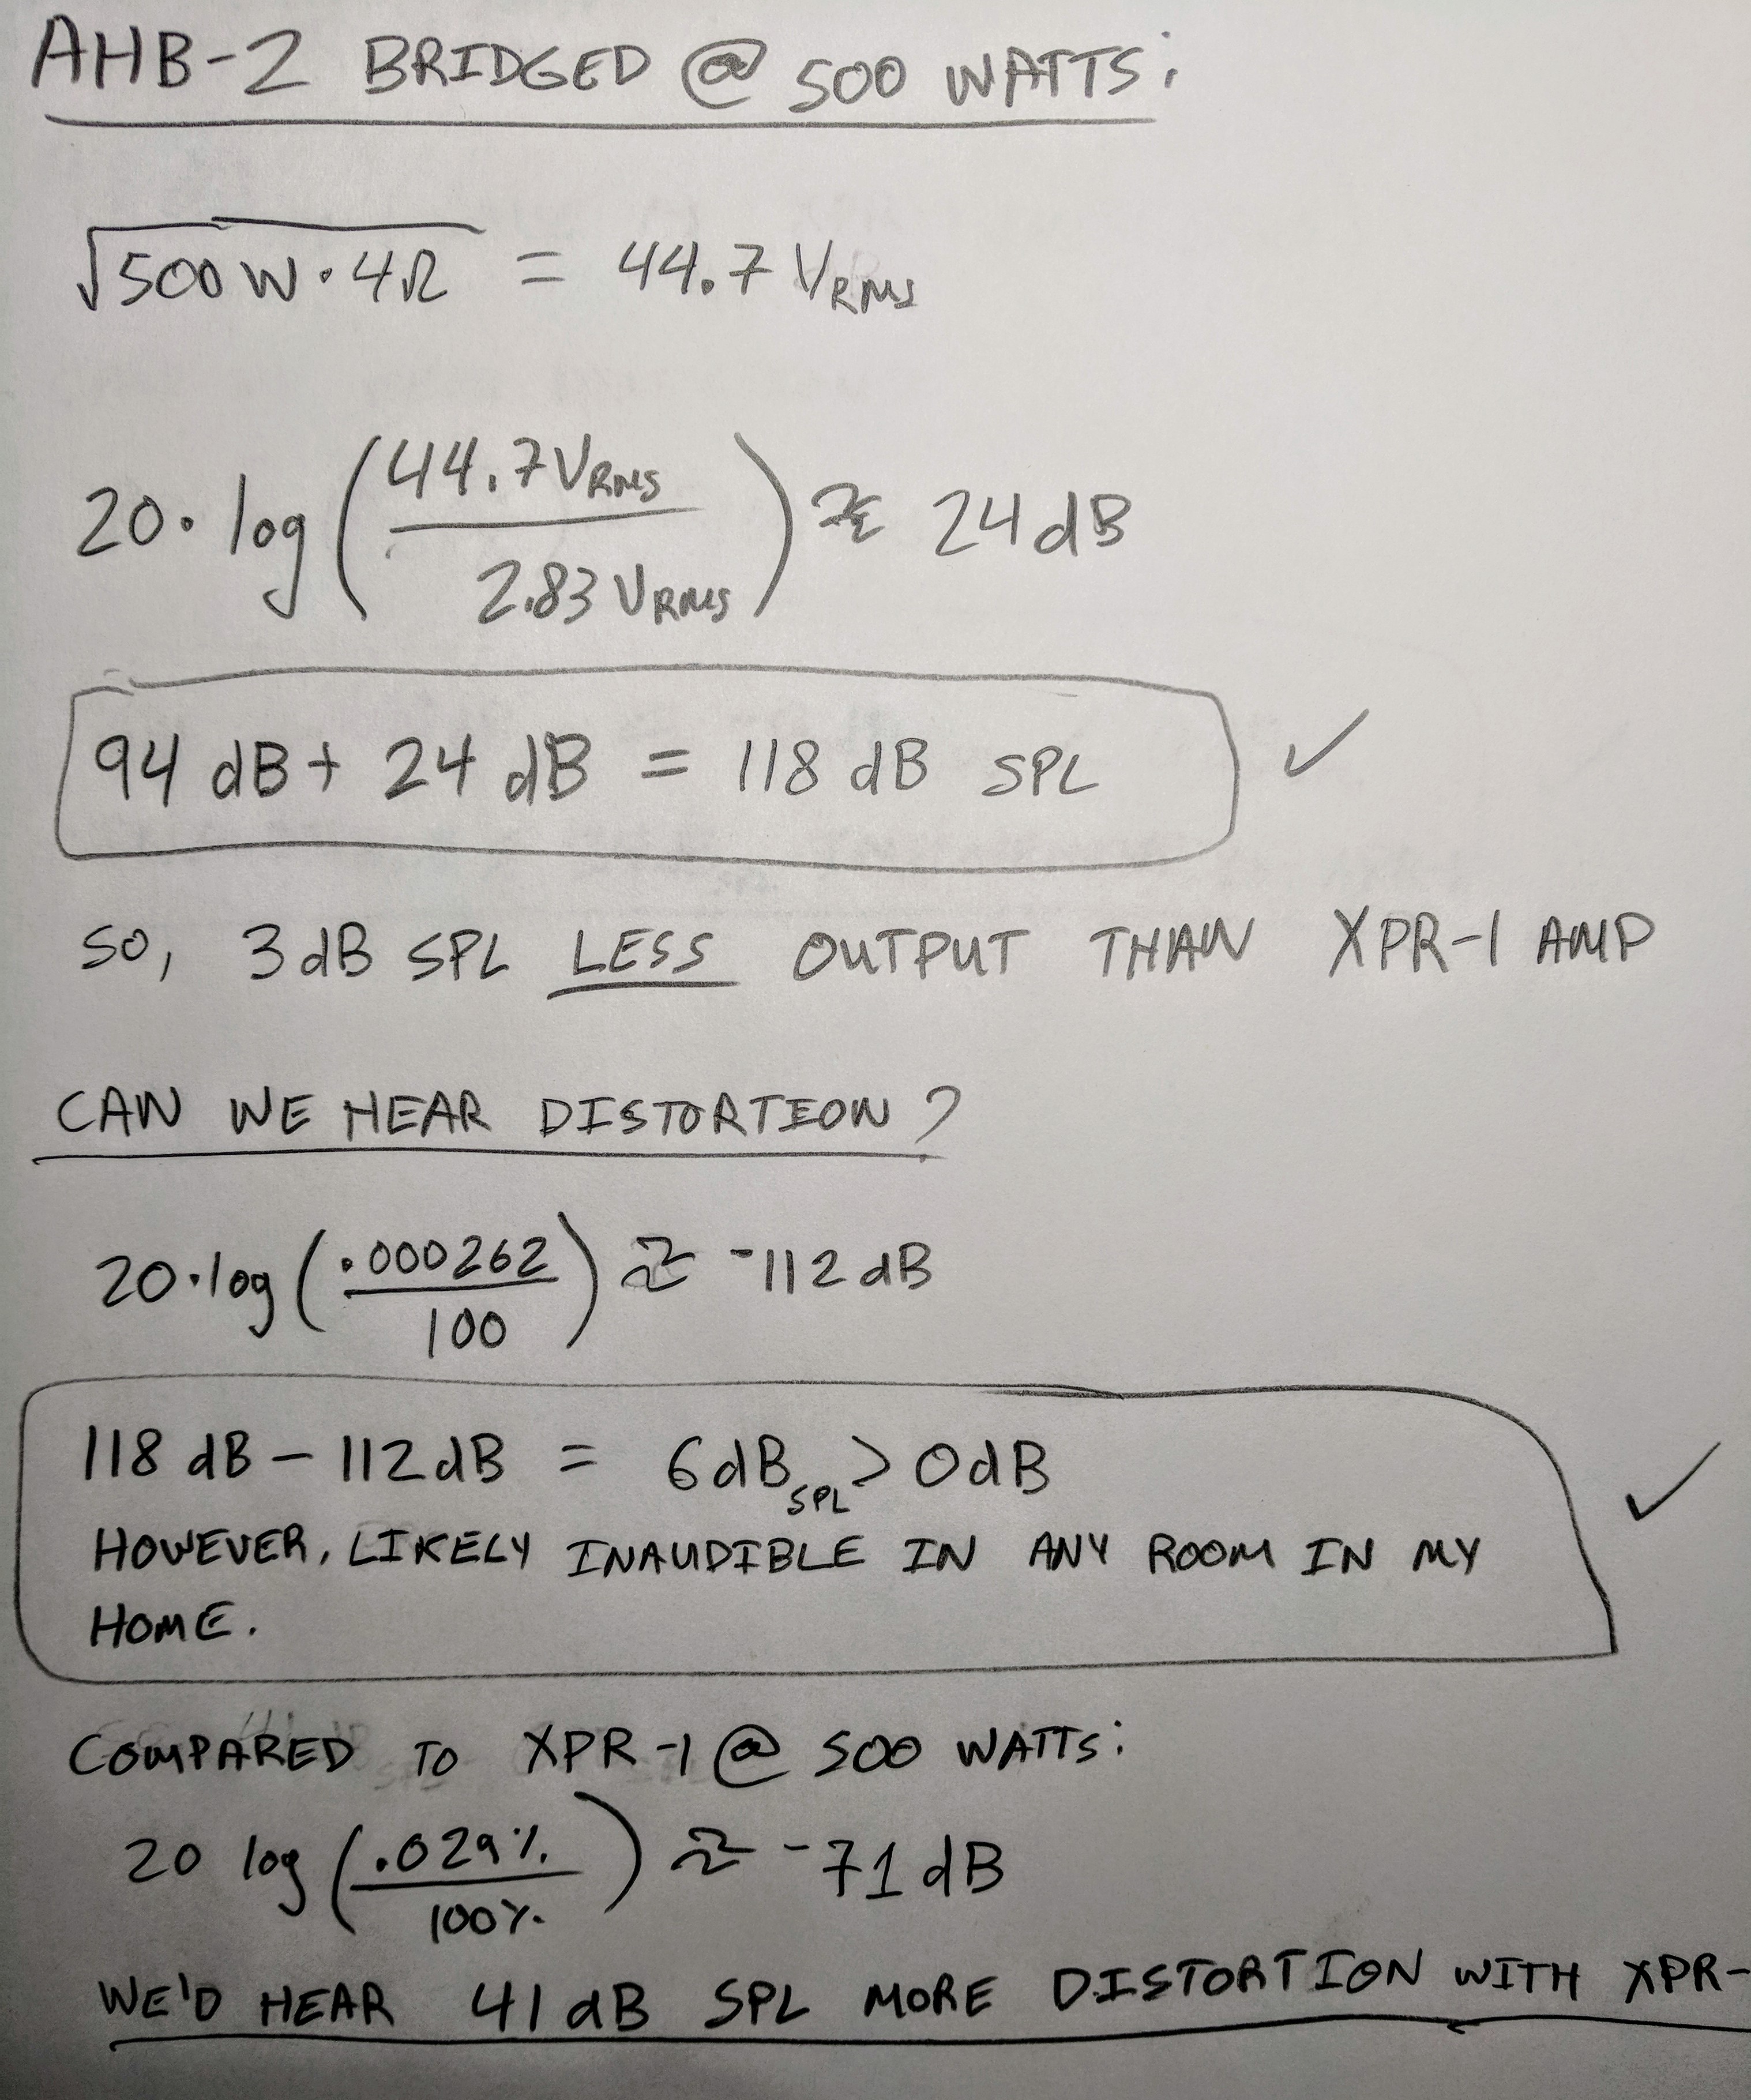 AHB-2 BRIDGED @ 500 WATTS:
√500W·4Ω = 44.7 VRMS
20·log(44.7VRMS / 2.83VRMS) ≈ 24dB
94 dB + 24 dB = 118 dB SPL ✓
SO, 3dB SPL LESS OUTPUT THAN XPR-1 AMP
CAN WE HEAR DISTORTION?
20·log(.000262 / 100) ≈ -112dB
118 dB - 112dB = 6dBSPL > 0dB ✓
HOWEVER, LIKELY INAUDIBLE IN ANY ROOM IN MY
HOME.
COMPARED TO XPR-1 @ 500 WATTS:
20 log(.029% / 100%) ≈ -71dB
WE'D HEAR 41dB SPL MORE DISTORTION WITH XPR-